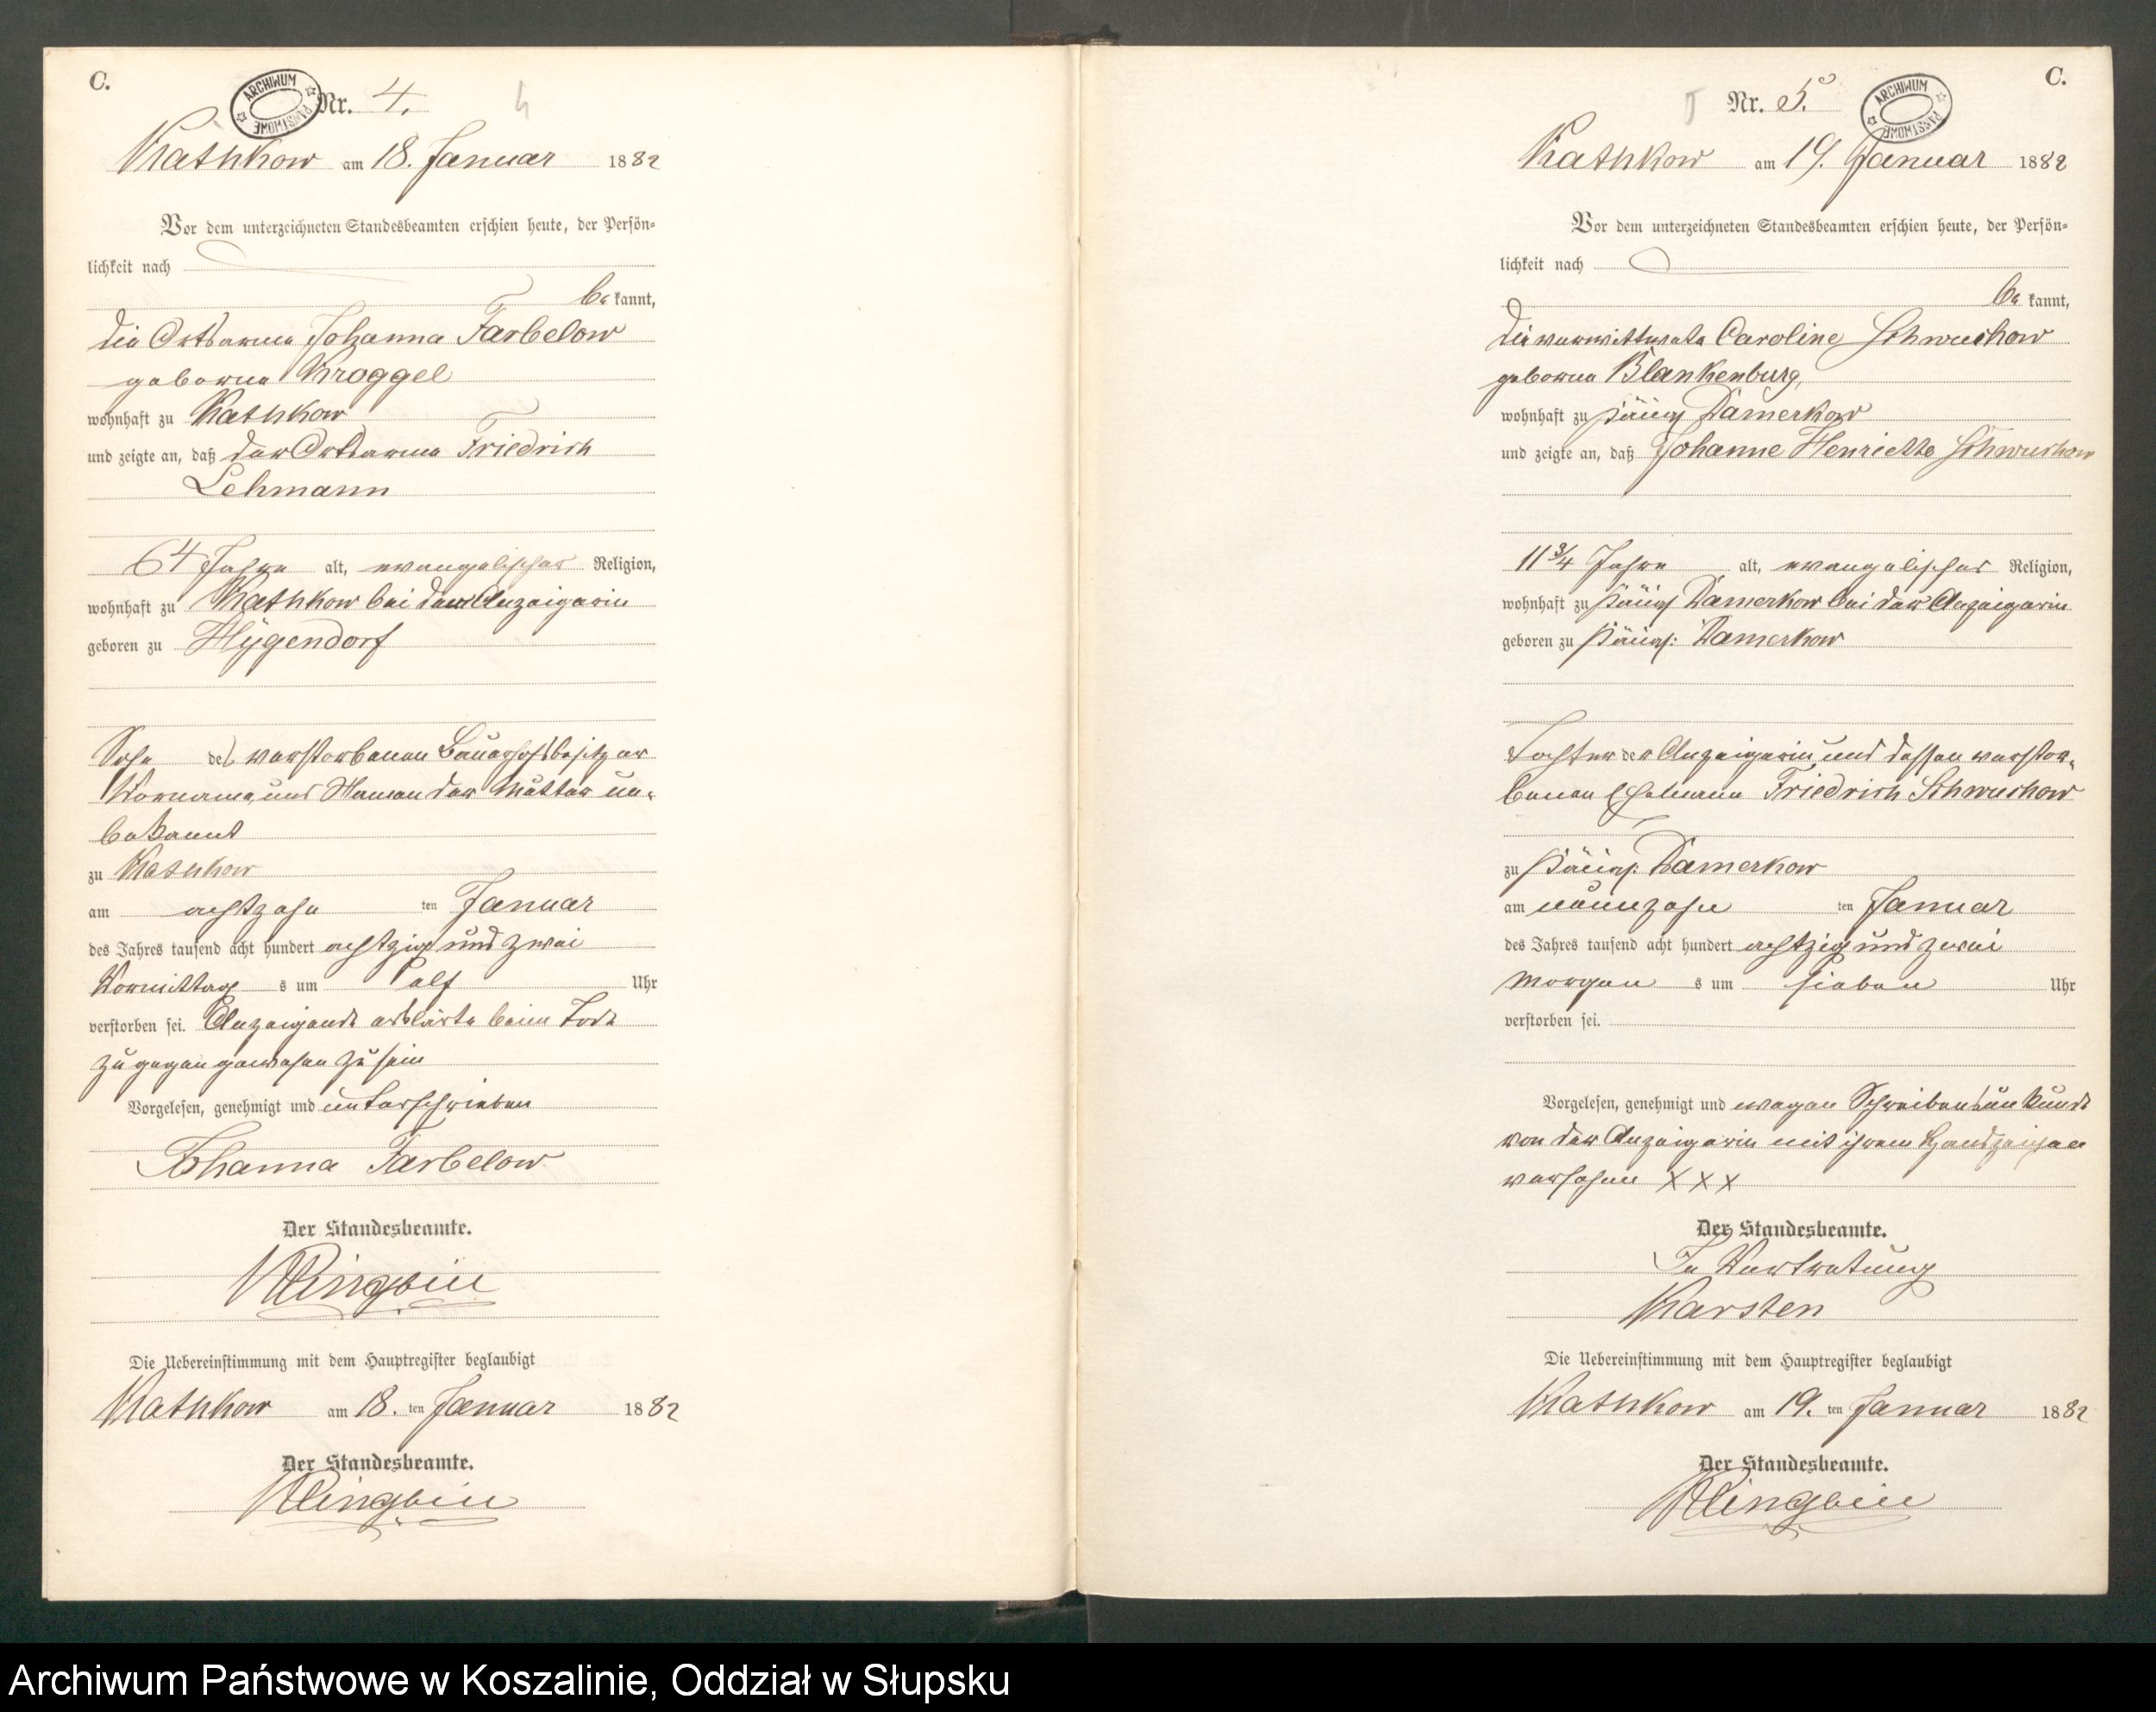 C.
ARCHIWUM PAŃSTWOWE
Nr. 4.
4
Kathkow am 18. Januar 1882
Vor dem unterzeichneten Standesbeamten erschien heute, der Persön-
lichkeit nach
be kannt,
die Ortsarme Johanna Farbelow
geborne Kroggel
wohnhaft zu Kathkow
und zeigte an, daß der Ortsarme Friedrich
Lehmann
64 Jahre alt, evangelischer Religion,
wohnhaft zu Kathkow bei der Anzeigerin
geboren zu Hygendorf
Sohn des verstorbenen Bauerhofsbesitzer
Vorname und Namen der Mutter un-
bekannt
zu Kathkow
am achtzehn ten Januar
des Jahres tausend acht hundert achtzig und zwei
Vormittag s um elf Uhr
verstorben sei. Anzeigende erklärte beim Tode
zugegen gewesen zu sein
Vorgelesen, genehmigt und unterschrieben
Johanna Farbelow
Der Standesbeamte.
Klingbiel
Die Uebereinstimmung mit dem Hauptregister beglaubigt
Kathkow am 18. ten Januar 1882
Der Standesbeamte.
Klingbiel
C.
5
Nr. 5.
ARCHIWUM PAŃSTWOWE
Kathkow am 19. Januar 1882
Vor dem unterzeichneten Standesbeamten erschien heute, der Persön-
lichkeit nach
be kannt,
die verwittwete Caroline Schwuchow
geborne Blankenburg,
wohnhaft zu Damerkow
und zeigte an, daß Johanne Henriette Schwuchow
11 3/4 Jahre alt, evangelischer Religion,
wohnhaft zu Damerkow bei der Anzeigerin
geboren zu Damerkow
Tochter der Anzeigerin und dessen verstor-
benen Ehemann Friedrich Schwuchow
zu Damerkow
am neunzehn ten Januar
des Jahres tausend acht hundert achtzig und zwei
Morgen s um sieben Uhr
verstorben sei.
Vorgelesen, genehmigt und wegen Schreibensunkunde
von der Anzeigerin mit ihrem Handzeichen
versehen XXX
Der Standesbeamte.
In Vertretung
Karsten
Die Uebereinstimmung mit dem Hauptregister beglaubigt
Kathkow am 19. ten Januar 1882
Der Standesbeamte.
Klingbiel
Archiwum Państwowe w Koszalinie, Oddział w Słupsku